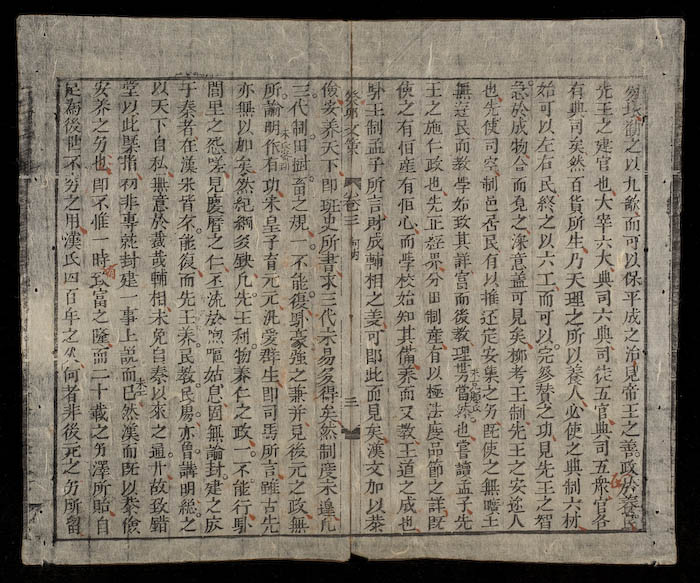 勸之以九歌而可以保平成之治見帝王之善政於養民
先王之建官也大宰六大典司六典司徒五官典司五衆官各
有典司矣然百貨所生乃天理之所以養人必使之典制六材
始可以左右民終之以六工而可以完參贊之功見先王之智
急於成物合而觀之深意蓋可見矣抑考王制先王之安逸人
也先使司空制邑居民有以推还定安集之勞既使之無曠土
無遊民而教學始致其詳富而後教理勢當然也嘗讀孟子先
王之施仁政也先正經界分田制産有以極法度品節之詳既
使之有恒産有恒心而學校始知其備养而又教王道之成也
王制孟子所言財成輔相之美可即此而見矣漢文加以恭
文集 卷三 三
儉安养天下即班史所書求三代亦易多得矣然制度未遑凡
三代制田里畜之規一不能復馭豪強之兼并見後元之政無
所論明作有功宋皇子育元元汎愛群生即司馬所言雖古先
亦無以加矣然紀綱多缺凡先王利物养仁之政一不能行馭
閭里之怨嗟見慶曆之仁丕流於煦嘔姑息固無論封建之废
于秦者在漢宋皆不能復而先王养民教民易亦魯講明總之
以天下自私無意於裁成輔相未免自秦以來之通弁故致錯
堂以此策指初非專就封建一事上說而已然漢而既以恭儉
安养之勞也即不惟一時致富之隆而二十載之勞澤所貽自
足為後世不穷之用漢氏四百年之久何者非後元之勞所留